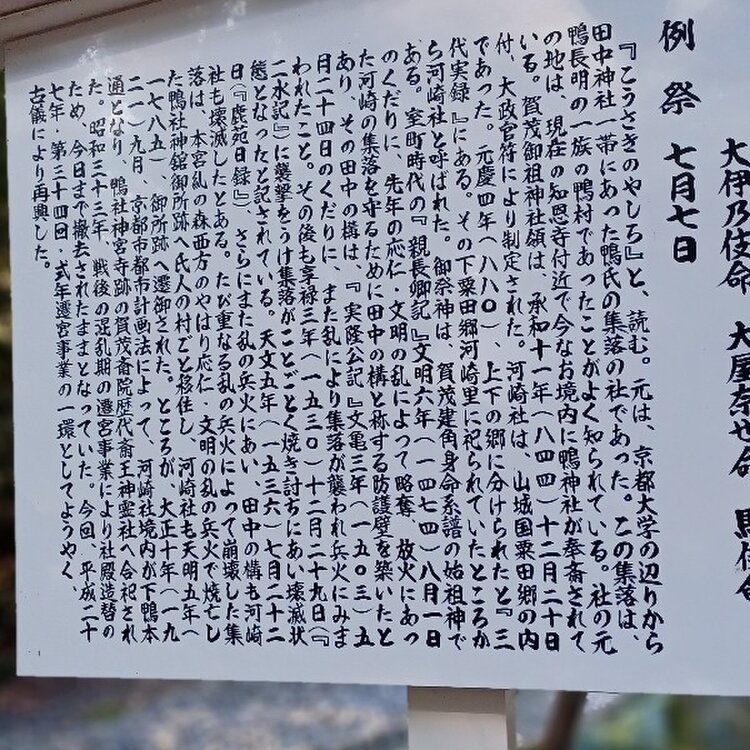 大伊乃伎命 大屋奈世命
例祭 七月七日
『こうさきのやしろ』と、読む。元は、京都大学の辺りから
田中神社一帯にあった鴨氏の集落の社であった。この集落は、
鴨長明の一族の鴨村であったことがよく知られている。社の元
の地は、現在の知恩寺付近で今なお境内に鴨神社が奉斎されて
いる。賀茂御祖神社領は、承和十一年(八四四)十二月二十日
付、大政官符により制定された。河崎社は、山城国粟田郷の内
であった。元慶四年(八八〇)、上下の郷に分けられたと『三
代実録』にある。その下粟田郷河崎里に祀られていたところか
ら河崎社と呼ばれた。御祭神は、賀茂建角身命系譜の始祖神で
ある。室町時代の『親長卿記』文明六年(一四七四)八月一日
のくだりに、先年の応仁・文明の乱によって略奪、放火にあっ
た河崎の集落を守るために田中の構と称する防護壁を築いたと
あり、その田中の構は、『実隆公記』文亀三年(一五〇三)五
月二十四日のくだりに、また乱により集落が襲われ兵火にみま
われたこと。その後も享禄三年(一五三〇)十二月二十九日(『
二水記』)に襲撃をうけ集落がことごとく焼き討ちにあい壊滅状
態となったと記されている。天文五年(一五三六)七月二十二
日(『鹿苑日録』)、さらにまた乱の兵火にあい、田中の構も河崎
社も壊滅したとある。たび重なる乱の兵火によって崩壊した集
落は、本宮乱の森西方のやはり応仁・文明の乱の兵火で焼亡し
た鴨社神舘御所跡へ氏人の村ごと移住し、河崎社も天明五年(
一七八五)、御所跡へ遷御された。ところが、大正十年(一九
二一)九月、京都市都市計画法によって、河崎社境内が下鴨本
通となり、鴨社神宮寺跡の賀茂斎院歴代斎王神霊社へ合祀され
た。昭和三十三年、戦後の混乱期の遷宮事業により社殿造替の
ため、今日まで撤去されたままとなっていた。今回、平成二十
七年・第三十四回 式年遷宮事業の一環としてようやく、
古儀により再興した。